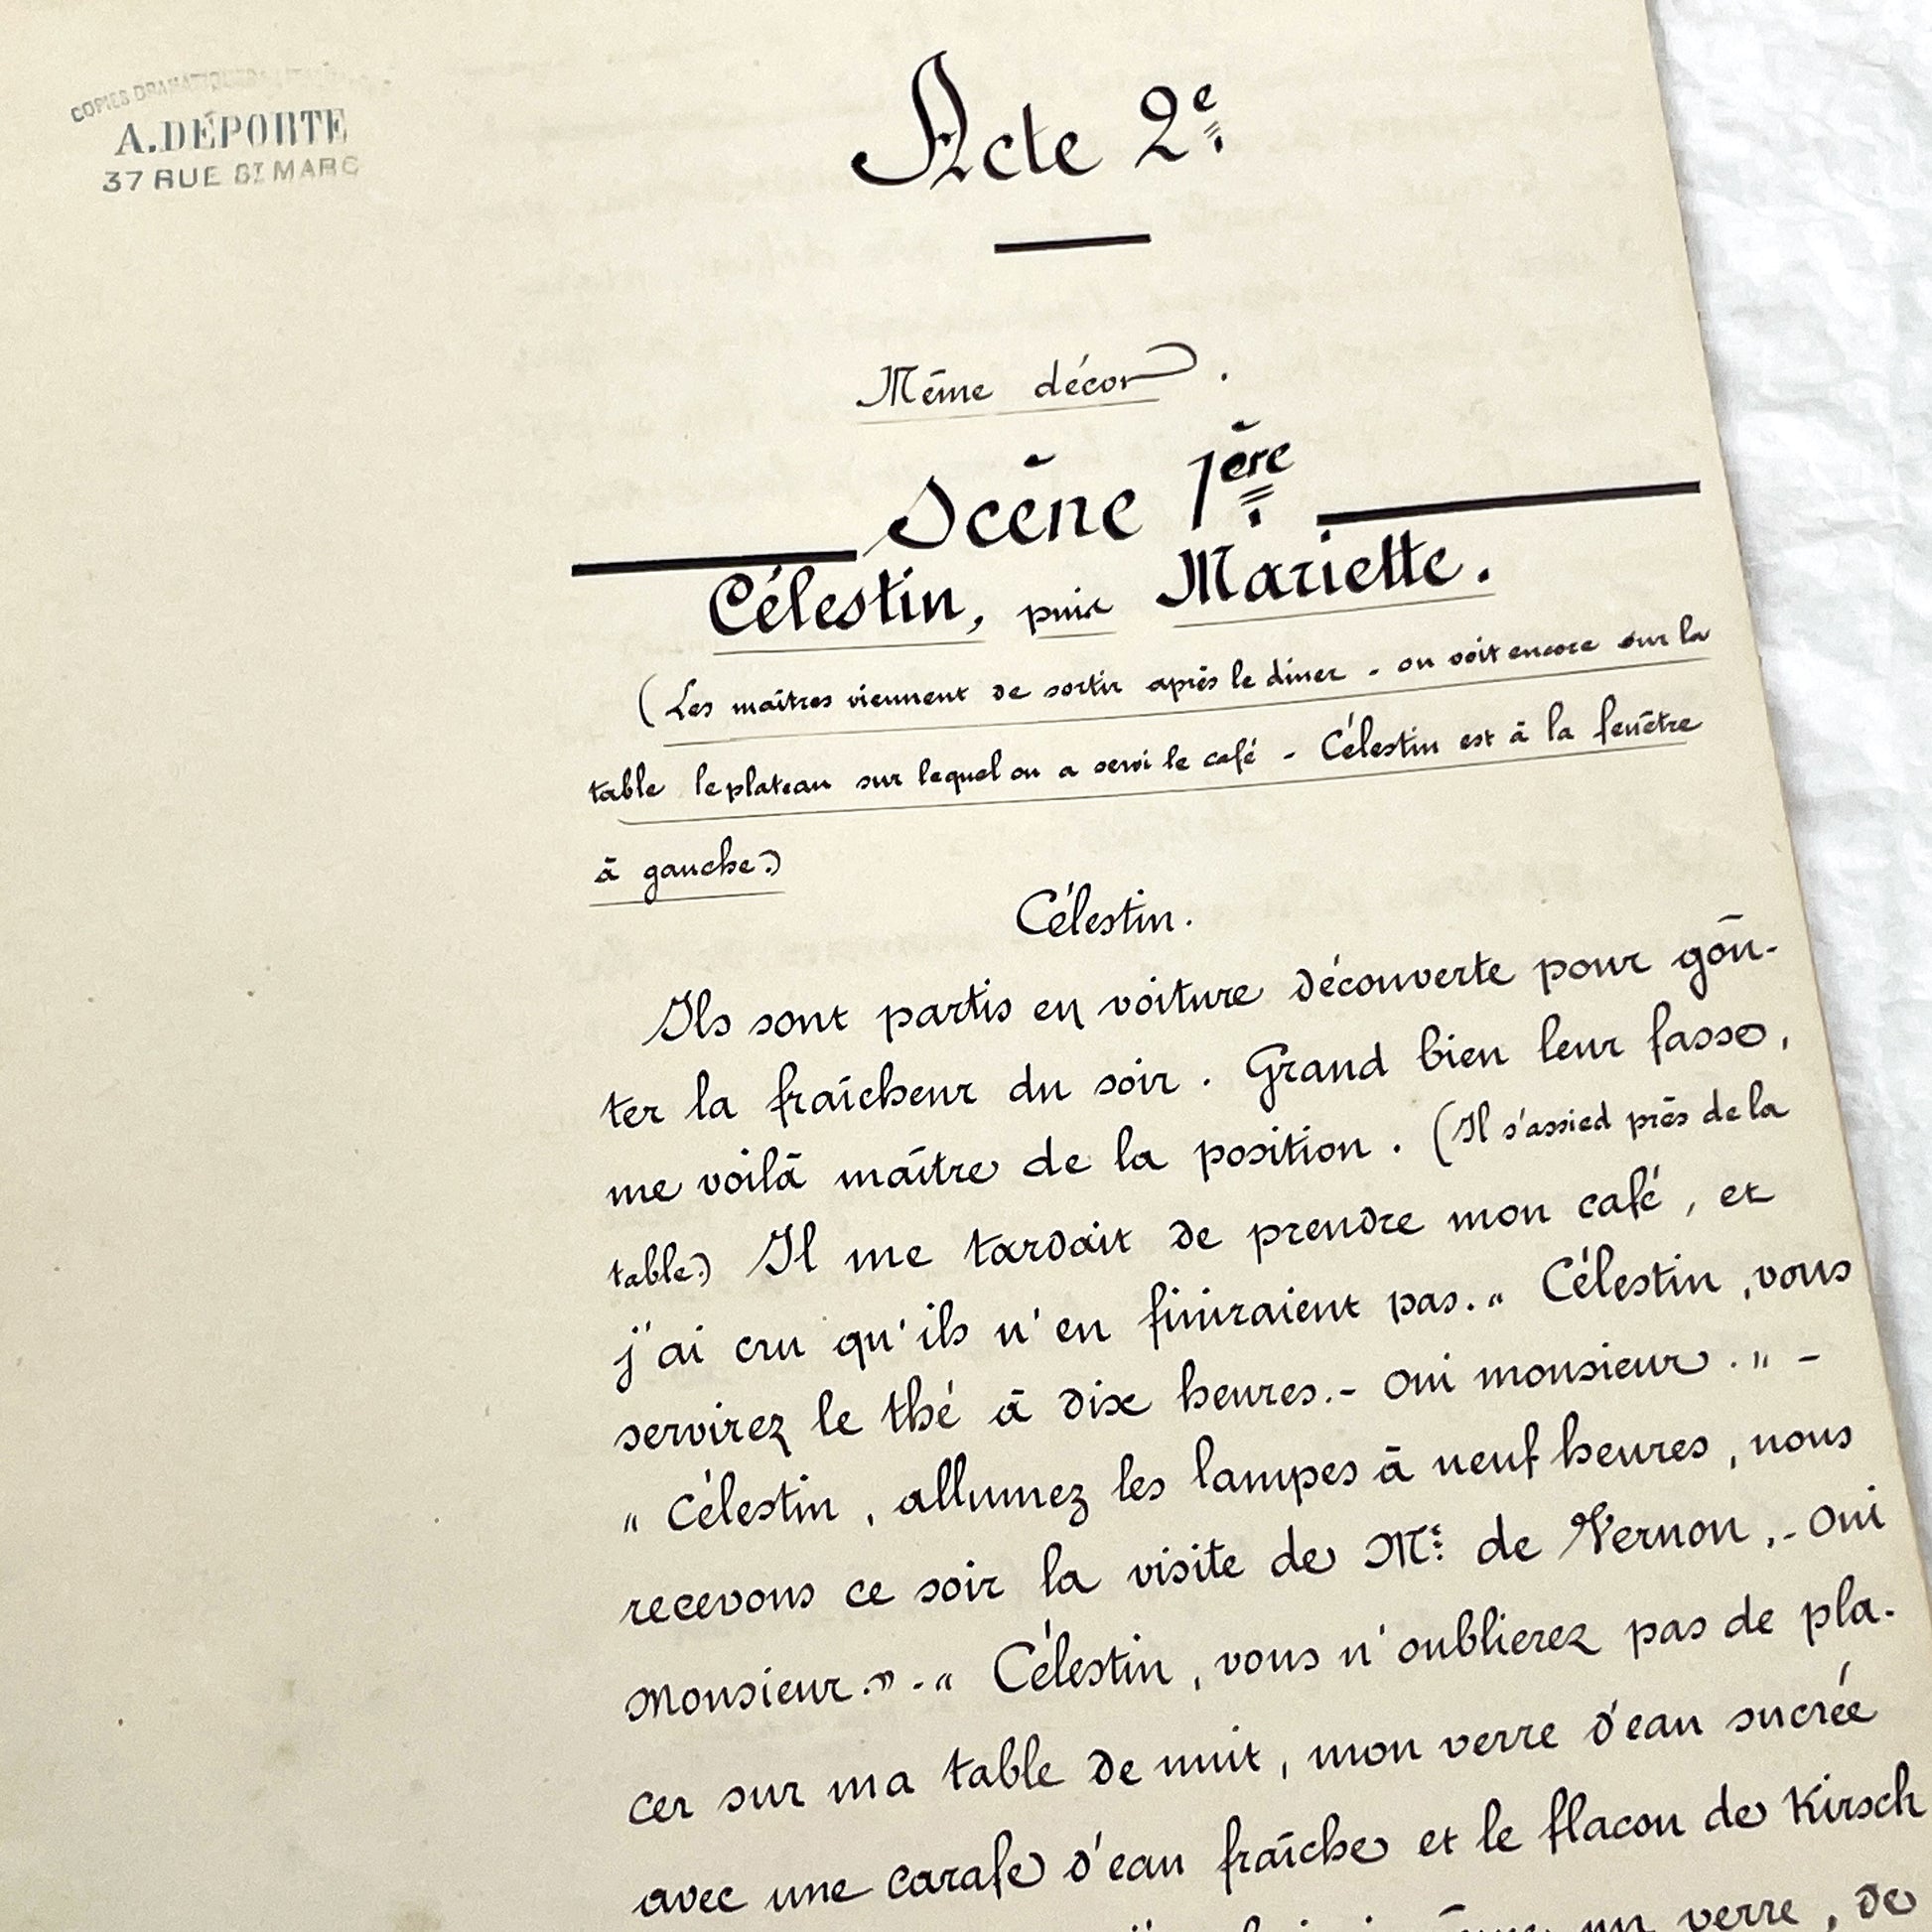 COPIES DRAMATIQUES
A. DÉPORTE
37 RUE ST MARC
Acte 2e
Même décor.
Scène 1ère
Célestin, puis Mariette.
(Les maîtres viennent de sortir après le dîner - on voit encore sur la
table le plateau sur lequel on a servi le café - Célestin est à la fenêtre
à gauche)
Célestin.
Ils sont partis en voiture découverte pour goû-
ter la fraîcheur du soir. Grand bien leur fasse,
me voilà maître de la position. (Il s'assied près de la
table) Il me tardait de prendre mon café, et
j'ai cru qu'ils n'en finiraient pas. " Célestin, vous
servirez le thé à dix heures. - Oui monsieur." -
" Célestin, allumez les lampes à neuf heures, nous
recevons ce soir la visite de Mr de Vernon, - Oui
Monsieur." - " Célestin, vous n'oublierez pas de pla-
cer sur ma table de nuit, mon verre d'eau sucrée
avec une carafe d'eau fraîche et le flacon de Kirsch
un verre, de